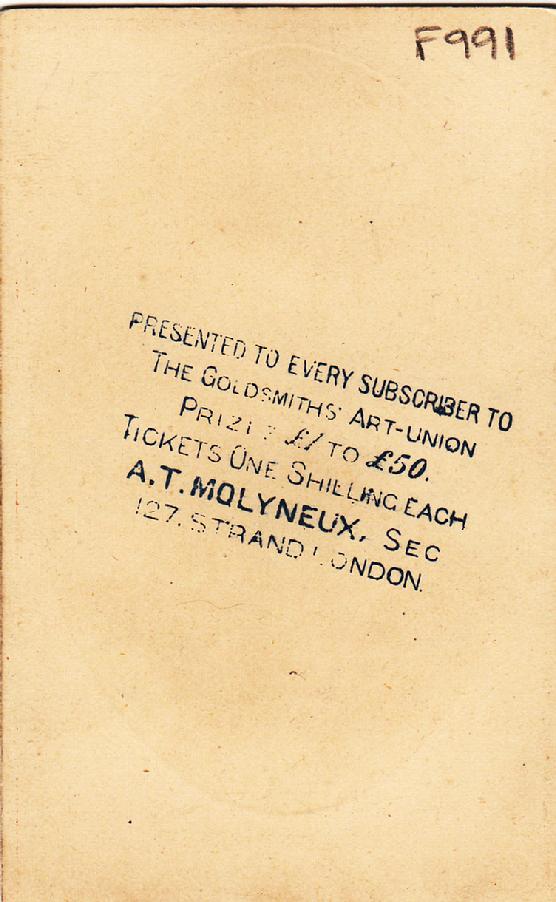 F991
PRESENTED TO EVERY SUBSCRIBER TO
THE GOLDSMITHS' ART-UNION
PRIZES £1 TO £50.
TICKETS ONE SHILLING EACH
A.T. MOLYNEUX, SEC
127, STRAND LONDON.